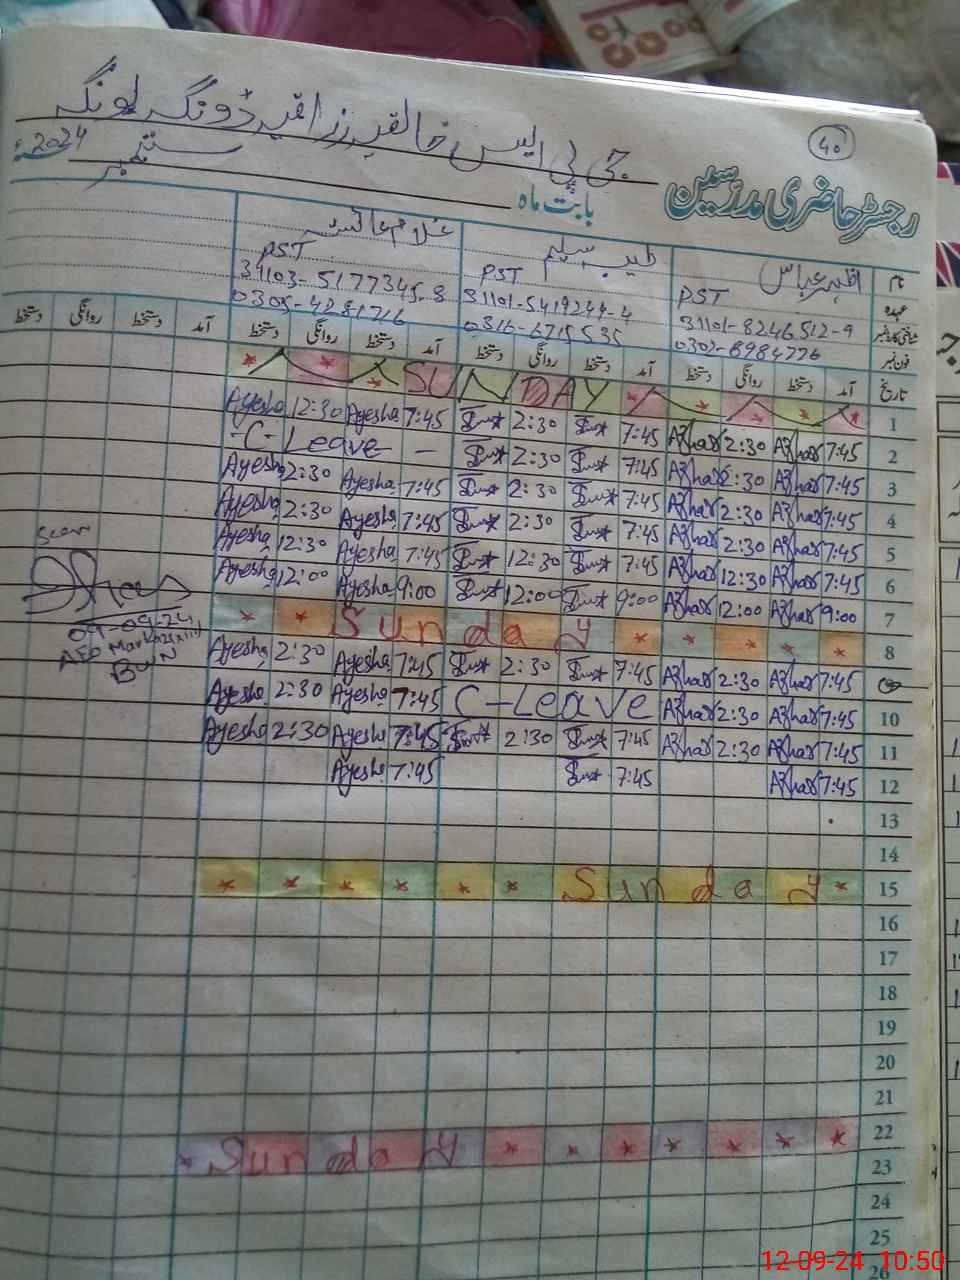 40
جی پی ایس خالقیہ رزاقیہ ڈونگہ لونگہ
رجسٹر حاضری مدرسین
بابت ماہ ستمبر 2024ء
نام اظہر عباس طیب سلیم
عہدہ PST PST PST
شناختی کارڈ نمبر 31101-8246512-9 31101-5419244-4 31103-5177345-8
فون نمبر 0302-8984776 0316-6715535 0305-4281716
تاریخ آمد دستخط روانگی دستخط آمد دستخط روانگی دستخط آمد دستخط روانگی دستخط آمد دستخط روانگی دستخط
* * * SUNDAY * * * * * 1
Ayesha 12:30 Ayesha 7:45 2:30 7:45 Azhar 2:30 Azhar 7:45 2
-C- Leave - 2:30 7:45 Azhar 2:30 Azhar 7:45 3
Ayesha 2:30 Ayesha 7:45 2:30 7:45 Azhar 2:30 Azhar 7:45 4
Ayesha 2:30 Ayesha 7:45 2:30 7:45 Azhar 2:30 Azhar 7:45 5
Ayesha 12:30 Ayesha 7:45 12:30 7:45 Azhar 12:30 Azhar 7:45 6
Ayesha 12:00 Ayesha 9:00 12:00 9:00 Azhar 12:00 Azhar 9:00 7
* * Sunday * * * * * 8
Ayesha 2:30 Ayesha 7:45 2:30 7:45 Azhar 2:30 Azhar 7:45
Ayesha 2:30 Ayesha 7:45 C-Leave Azhar 2:30 Azhar 7:45 10
Ayesha 2:30 Ayesha 7:45 2:30 7:45 Azhar 2:30 Azhar 7:45 11
Ayesha 7:45 7:45 Azhar 7:45 12
13
14
* * * * * * Sunday * 15
16
17
18
19
20
21
22
* Sunday * * * * * * * 23
24
25
26
seen
09-09-24
AEO
BWN
12-09-24 10:50